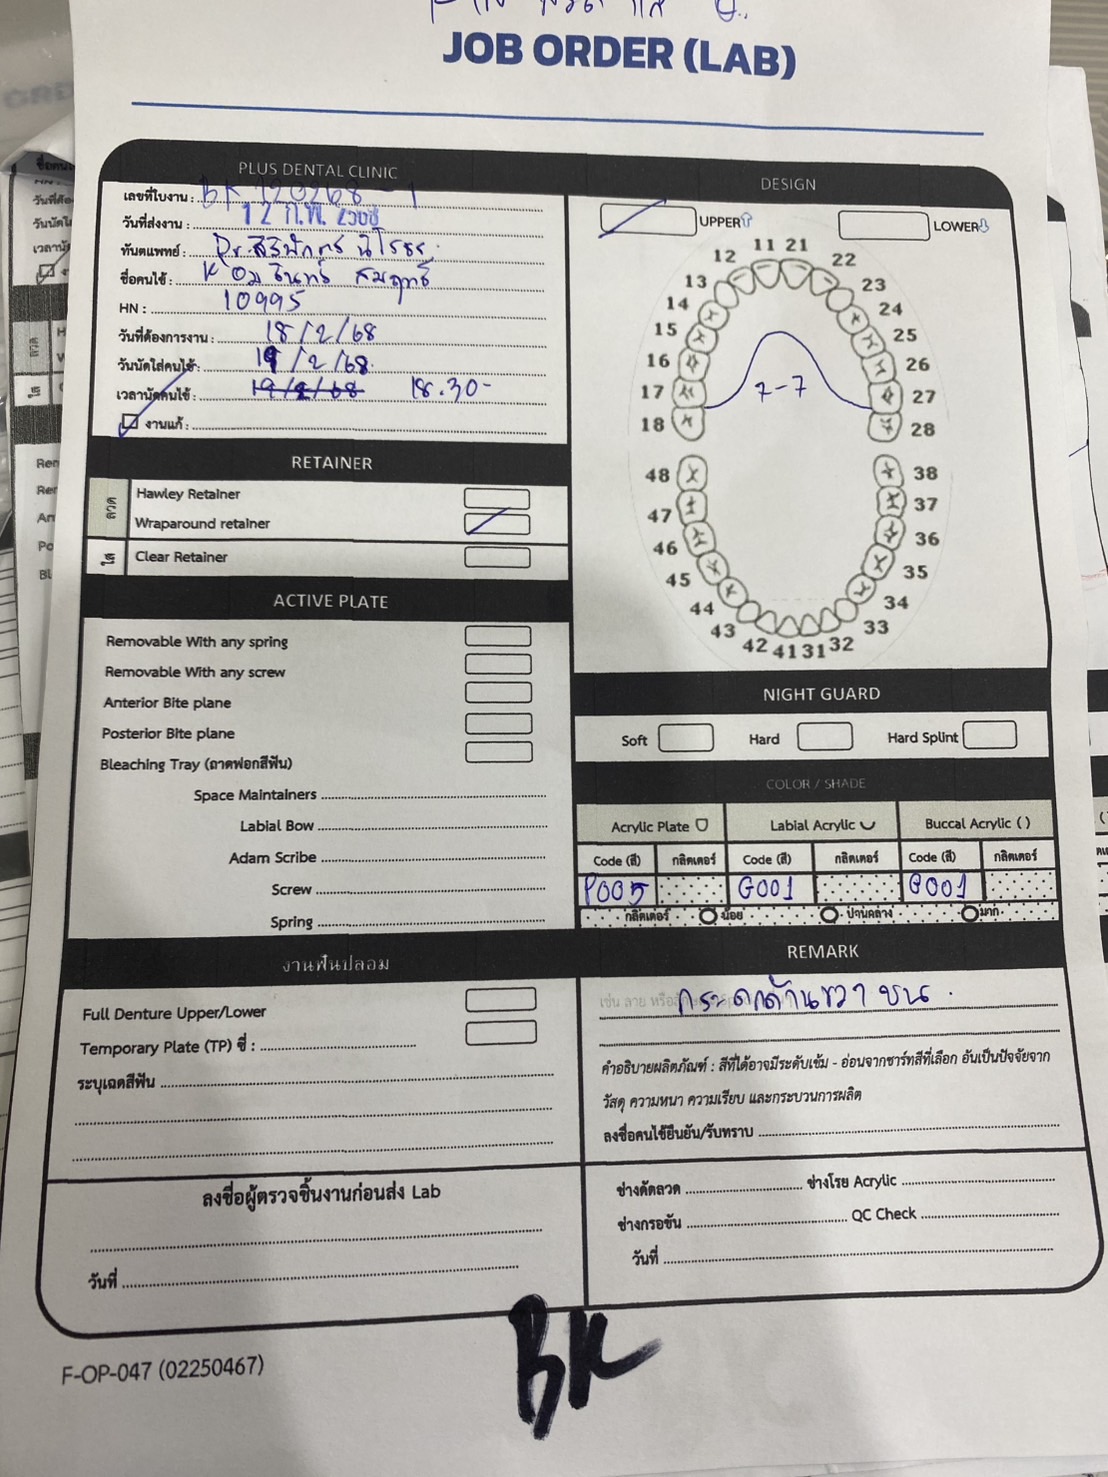 JOB ORDER (LAB)
PLUS DENTAL CLINIC
เลขที่ใบงาน : BK 120268 - 1
วันที่ส่งงาน : 12 ก.พ. 2568
ทันตแพทย์ : Dr.
ชื่อคนไข้ : K
HN : 10995
วันที่ต้องการงาน : 18/2/68
วันนัดใส่คนไข้ : 19/2/68
เวลานัดคนไข้ : 19/2/68 18.30-
งานแก้ :
RETAINER
ลวด
Hawley Retainer
Wraparound retainer
ใส
Clear Retainer
ACTIVE PLATE
Removable With any spring
Removable With any screw
Anterior Bite plane
Posterior Bite plane
Bleaching Tray (ถาดฟอกสีฟัน)
Space Maintainers
Labial Bow
Adam Scribe
Screw
Spring
งานฟันปลอม
Full Denture Upper/Lower
Temporary Plate (TP) ซี่ :
ระบุเฉดสีฟัน
ลงชื่อผู้ตรวจชิ้นงานก่อนส่ง Lab
วันที่
DESIGN
UPPER LOWER
11 21
12 22
13 23
14 24
15 25
16 26
17 27
18 28
7-7
48 38
47 37
46 36
45 35
44 34
43 33
42 41 31 32
NIGHT GUARD
Soft Hard Hard Splint
COLOR / SHADE
Acrylic Plate Labial Acrylic Buccal Acrylic ( )
Code (สี) กลิตเตอร์ Code (สี) กลิตเตอร์ Code (สี) กลิตเตอร์
P005 G001 G001
กลิตเตอร์ น้อย ปานกลาง มาก
REMARK
กระดกด้านขวา บน
คำอธิบายผลิตภัณฑ์ : สีที่ได้อาจมีระดับเข้ม - อ่อนจากชาร์ทสีที่เลือก อันเป็นปัจจัยจาก
วัสดุ ความหนา ความเรียบ และกระบวนการผลิต
ลงชื่อคนไข้ยืนยัน/รับทราบ
ช่างดัดลวด ช่างโรย Acrylic
ช่างกรอขัน QC Check
วันที่
BK
F-OP-047 (02250467)